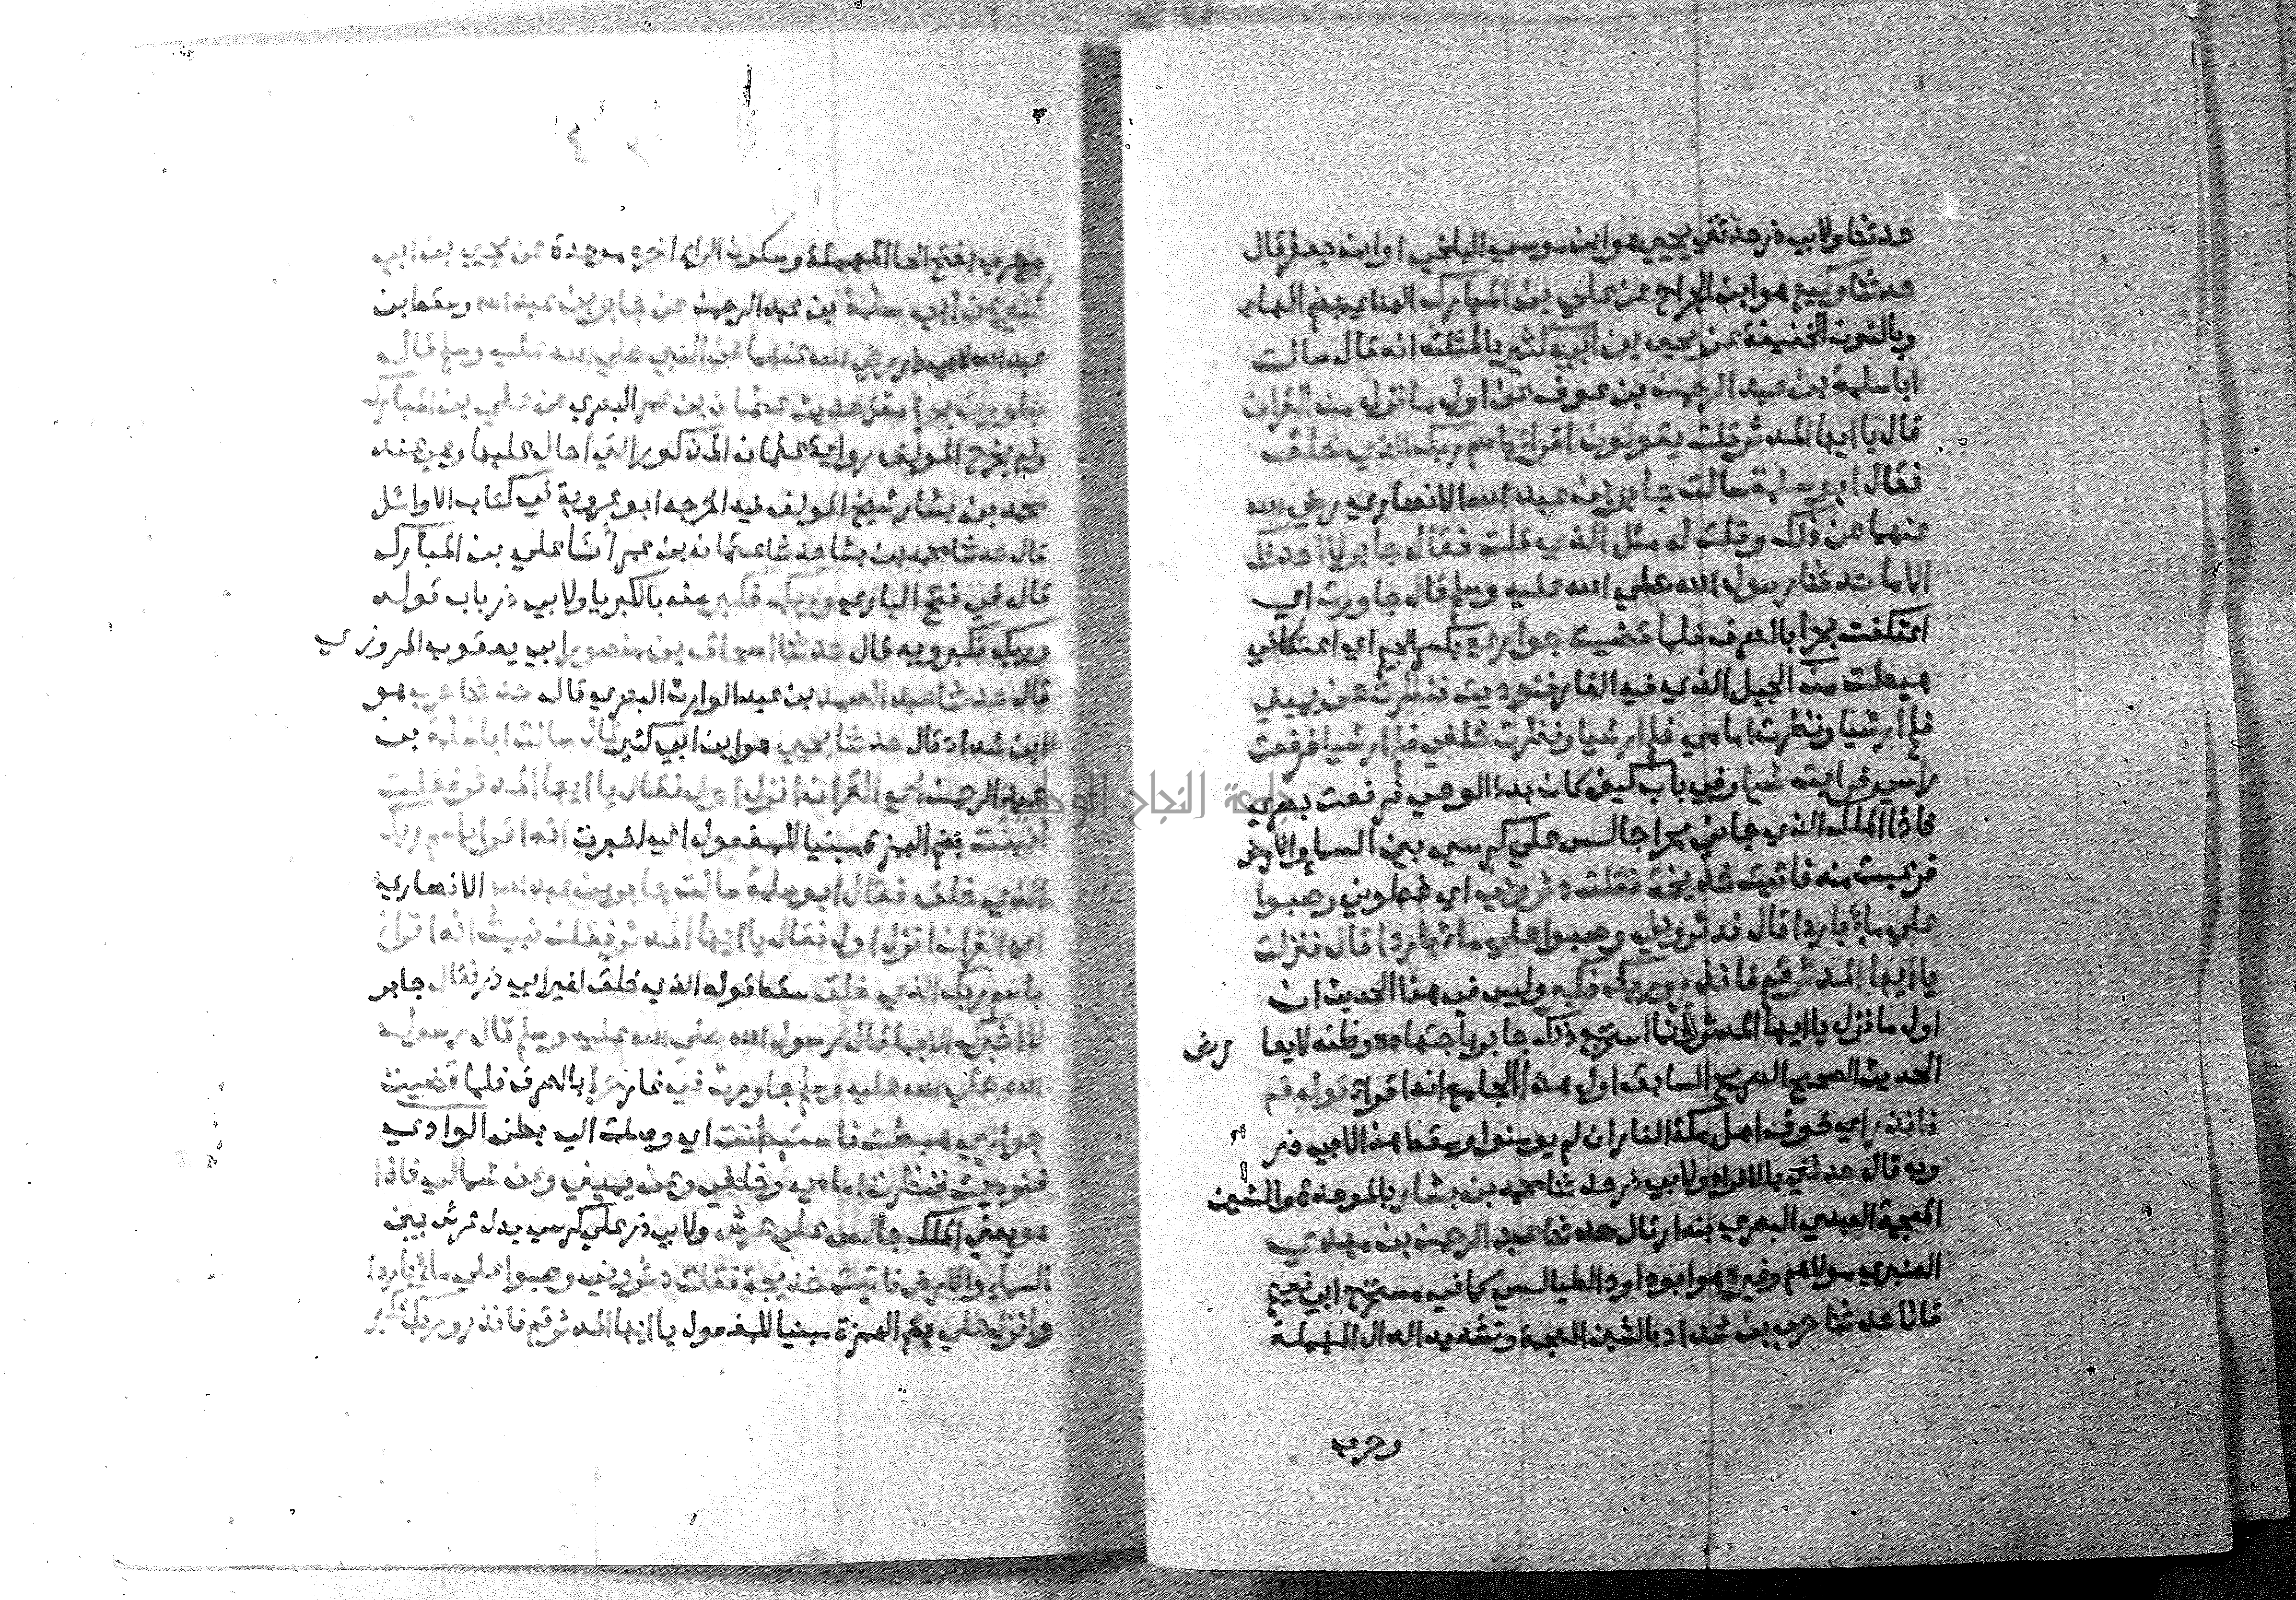 حدثنا ولابي ذر حدثني يحيي هو ابن موسي البلخي او ابن جعفر قال
حدثنا وكيع هو ابن الجراح عن علي بن المبارك الهناي بضم الهاء
وبالنون الخفيفة عن يحيى بن ابي كثير بالمثلثة انه قال سالت
ابا سلمة بن عبد الرحمن بن عوف عن اول ما نزل من القران
قال يا ايها المدثر قلت يقولون اقرا باسم ربك الذي خلق
فقال ابو سلمة سالت جابر بن عبد الله الانصاري رضي الله
عنهما عن ذلك وقلت له مثل الذي قلت فقال جابر لا احدثك
الا ما حدثنا رسول الله صلي الله عليه وسلم قال جاورت اي
اعتكفت بحرا بالصرف فلما قضيت جواري بكسر الجيم اي اعتكافي
هبطت من الجبل الذي فيه الغار فنوديت فنظرت عن يميني
فلم ار شيا ونظرت امامي فلم ار شيا ونظرت خلفي فلم ار شيا فرفعت
راسي فرايت شيا وفي باب كيف كان بدء الوحي فرفعت بصري
فاذا الملك الذي جاني بحرا جالس علي كرسي بين السماء والارض
فرعبت منه فاتيت خديجة فقلت دثروني اي غطوني وصبوا
علي ماء باردا قال فدثروني وصبوا علي ماء باردا قال فنزلت
يا ايها المدثر قم فانذر وربك فكبر وليس في هذا الحديث ان
اول ما نزل يا ايها المدثر وانما استخرج ذلك جابر باجتهاده وظنه لا يعارض
الحديث الصحيح الصريح السابق اول هذا الجامع انه اقرا قوله قم
فانذر اي خوف اهل مكة النار ان لم يومنوا وسقط هذا لابي ذر
وبه قال حدثني بالافراد ولابي ذر حدثنا محمد بن بشار بالموحدة والشين
المعجمة العبدي البصري بندار قال حدثنا عبد الرحمن بن مهدي
العنبري مولاهم وغيره هو ابو داود الطيالسي كما في مستخرج ابي نعيم
قالا حدثنا حرب بن شداد بالشين المعجمة وتشديد الدال المهملة
وحرب
وحرب بفتح الحا المهملة وسكون الراء اخره موحدة عن يحيي بن ابي
كثير عن ابي سلمة بن عبد الرحمن عن جابر بن عبد الله وسقط ابن
عبد الله لابي ذر رضي الله عنهما عن النبي صلي الله عليه وسلم قال
جاورت بحرا مثل حديث عثمان بن عمر البصري عن علي بن المبارك
ولم يخرج المولف رواية عثمان المذكور التي احال عليها وهي عند
محمد بن بشار شيخ المولف فيه اخرجه ابو عروبة في كتاب الاوائل
قال حدثنا محمد بن بشار حدثنا عثمان بن عمر انبأنا علي بن المبارك
قاله في فتح الباري وربك فكبر عظمه بالكبريا ولابي ذر باب قوله
وربك فكبر وبه قال حدثنا اسحاق بن منصور ابي يعقوب المروزي
قال حدثنا عبد الصمد بن عبد الوارث البصري قال حدثنا حرب هو
ابن شداد قال حدثنا يحيي هو ابن ابي كثير قال سالت ابا سلمة بن
عبد الرحمن اي القران انزل اول فقال يا ايها المدثر فقلت
انبئت بضم الهمزة مبنيا للمفعول اي اخبرت انه اقرا باسم ربك
الذي خلق فقال ابو سلمة سالت جابر بن عبد الله الانصاري
اي القران انزل اول فقال يا ايها المدثر فقلت نبيت انه اقرا
باسم ربك الذي خلق سقط قوله الذي خلق لغير ابي ذر فقال جابر
لا اخبرك الا بما قال رسول الله صلي الله عليه وسلم قال رسول
الله صلي الله عليه وسلم جاورت في غار حرا بالصرف فلما قضيت
جواري هبطت فاستبطنت اي وصلت الي بطن الوادي
فنوديت فنظرت امامي وخلفي وعن يميني وعن شمالي فاذا
هو يعني الملك جالس علي عرش ولابي ذر علي كرسي بدل عرش بين
السماء والارض فاتيت خديجة فقلت دثروني وصبوا علي ماء باردا
وانزل علي بضم الهمزة مبنيا للمفعول يا ايها المدثر قم فانذر وربك فكبر